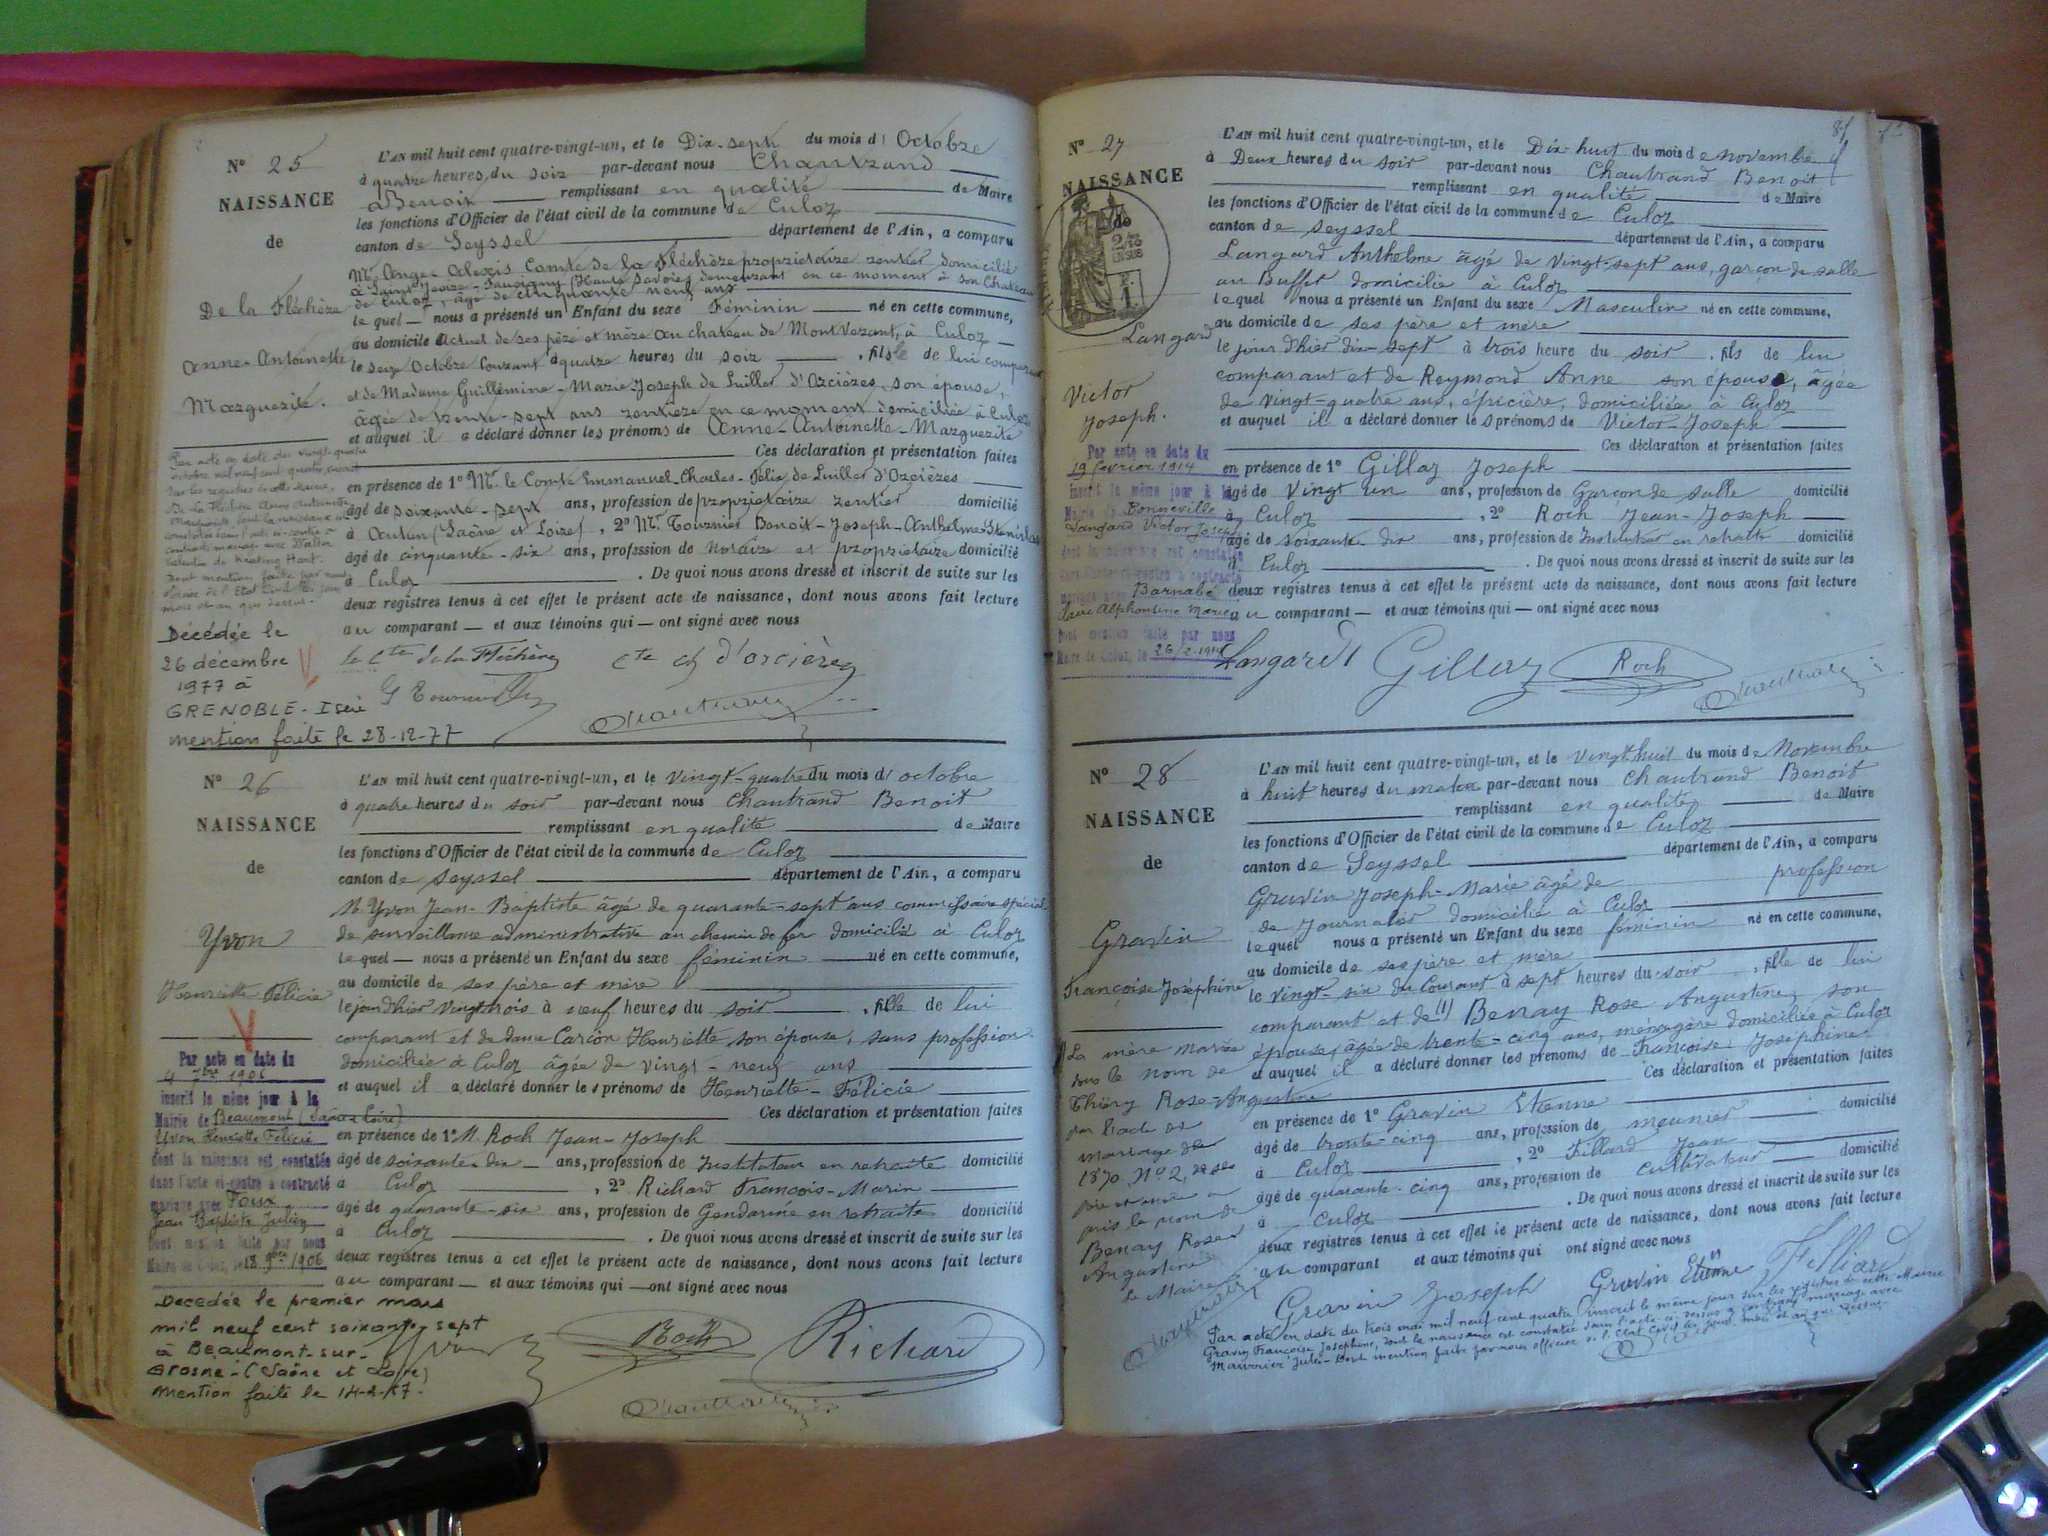 N° 25
NAISSANCE
de
De la Fléchère
Anne-Antoinette
Marguerite.
L'AN mil huit cent quatre-vingt-un, et le Dix-sept du mois d'Octobre
à quatre heures du soir par-devant nous Chautrand
Benoit remplissant en qualité de Maire
les fonctions d'Officier de l'état civil de la commune de Culoz
canton de Seyssel département de l'Ain, a comparu
Mr Ange Alexis Comte de la Fléchère propriétaire rentier domicilié
à Saint-Jeoire-Faucigny (Haute Savoie) demeurant en ce moment à son Chateau
de Culoz, âgé de cinquante neuf ans
le quel nous a présenté un Enfant du sexe Féminin né en cette commune,
au domicile actuel de ses père et mère au chateau de MontVerant, à Culoz
le seize Octobre courant à quatre heures du soir, fille de lui comparant
et de Madame Guillemine-Marie-Joseph de Luiller d'Orcières, son épouse,
âgée de trente-sept ans rentière en ce moment domiciliée à Culoz
et auquel il a déclaré donner les prénoms de Anne-Antoinette-Marguerite
Ces déclaration et présentation faites
en présence de 1° Mr. le Comte Emmanuel-Charles-Félix de Luiller d'Orcières
âgé de soixante-sept ans, profession de propriétaire rentier domicilié
à Autun (Saône et Loire), 2° Mr Tournier Benoit-Joseph-Anthelme-Stanislas
âgé de cinquante-six ans, profession de Notaire et propriétaire domicilié
à Culoz. De quoi nous avons dressé et inscrit de suite sur les
deux registres tenus à cet effet le présent acte de naissance, dont nous avons fait lecture
au comparant et aux témoins qui ont signé avec nous
Par acte en date du vingt-quatre
octobre mil neuf cent quatre, inscrit
sur les registres de cette Mairie,
De la Fléchère Anne Antoinette
Marguerite, dont la naissance est
constatée dans l'acte ci-contre a
contracté mariage avec
de Keating Hart.
Dont mention faite par nous
officier de l'Etat Civil les jour
mois et an que dessus.
Décédée le
26 décembre
1977 à
GRENOBLE - Isère
mention faite le 28-12-77
le Cte de la Fléchère Cte Ch d'orcières
Chautrand
N° 26
NAISSANCE
de
Yvon
Henriette Félicie
L'AN mil huit cent quatre-vingt-un, et le vingt-quatre du mois d'octobre
à quatre heures du soir par-devant nous Chautrand Benoit
remplissant en qualité de Maire
les fonctions d'Officier de l'état civil de la commune de Culoz
canton de Seyssel département de l'Ain, a comparu
M. Yvon Jean-Baptiste âgé de quarante-sept ans commissaire spécial
de surveillance administrative au chemin de fer domicilié à Culoz
le quel nous a présenté un Enfant du sexe féminin né en cette commune,
au domicile de ses père et mère
le jour d'hier vingt trois à neuf heures du soir, fille de lui
comparant et de dame Carcon Henriette son épouse, sans profession
domiciliée à Culoz âgée de vingt-neuf ans
et auquel il a déclaré donner les prénoms de Henriette-Félicie
Ces déclaration et présentation faites
en présence de 1° M. Roch Jean-Joseph
âgé de soixante-dix ans, profession de Instituteur en retraite domicilié
à Culoz, 2° Richard François-Marin
âgé de quarante-six ans, profession de Gendarme en retraite domicilié
à Culoz. De quoi nous avons dressé et inscrit de suite sur les
deux registres tenus à cet effet le présent acte de naissance, dont nous avons fait lecture
au comparant et aux témoins qui ont signé avec nous
Par acte en date du
4 7bre 1906
inscrit le même jour à la
Mairie de Beaumont (Saône & Loire)
Yvon Henriette Félicie
dont la naissance est constatée
dans l'acte ci-contre a contracté
mariage avec Faux
Jean Baptiste Julien
Dont mention faite par nous
Maire de Culoz, le 18 9bre 1906
Décédée le premier mars
mil neuf cent soixante sept
à BEAUMONT-sur-
GROSNE-(Saône et Loire)
mention faite le
Yvon Roch Richard
Chautrand
81
N° 27
NAISSANCE
de
Langard
Victor
Joseph.
L'AN mil huit cent quatre-vingt-un, et le Dix huit du mois de novembre
à Deux heures du soir par-devant nous Chautrand Benoit
remplissant en qualité de Maire
les fonctions d'Officier de l'état civil de la commune de Culoz
canton de Seyssel département de l'Ain, a comparu
Langard Anthelme âgé de vingt-sept ans, garçon de salle
au Buffet domicilié à Culoz
lequel nous a présenté un Enfant du sexe Masculin né en cette commune,
au domicile de ses père et mère
le jour d'hier dix-sept à trois heure du soir, fils de lui
comparant et de Reymond Anne son épouse, âgée
de vingt-quatre ans, épicière, domiciliée à Culoz
et auquel il a déclaré donner les prénoms de Victor-Joseph
Ces déclaration et présentation faites
en présence de 1° Gillaz Joseph
âgé de Vingt un ans, profession de Garçon de salle domicilié
à Culoz, 2° Roch Jean-Joseph
âgé de soixante dix ans, profession de Instituteur en retraite domicilié
à Culoz. De quoi nous avons dressé et inscrit de suite sur les
deux registres tenus à cet effet le présent acte de naissance, dont nous avons fait lecture
au comparant et aux témoins qui ont signé avec nous
Par acte en date du
19 février 1914
inscrit le même jour à la
Mairie de Bonneville
Langard Victor Joseph
dont la naissance est constatée
dans l'acte ci-contre a contracté
mariage avec Barnabé
Claire Alphontine Marie
Dont mention faite par nous
Maire de Culoz, le 26/2-1914
Langard Gillaz Roch
Chautrand
N° 28
NAISSANCE
de
Gravin
Françoise Joséphine
L'AN mil huit cent quatre-vingt-un, et le vingt huit du mois de Novembre
à huit heures du matin par-devant nous Chautrand Benoit
remplissant en qualité de Maire
les fonctions d'Officier de l'état civil de la commune de Culoz
canton de Seyssel département de l'Ain, a comparu
Gravin Joseph-Marie âgé de profession
de Journalier domicilié à Culoz
lequel nous a présenté un Enfant du sexe féminin né en cette commune,
au domicile de ses père et mère
le vingt-six du Courant à sept heures du soir, fille de lui
comparant et de (1) Benay Rose Augustine, son
épouse, âgée de trente-cinq ans, ménagère domiciliée à Culoz
et auquel il a déclaré donner les prénoms de Françoise Joséphine
Ces déclaration et présentation faites
en présence de 1° Gravin Etienne
âgé de trente-cinq ans, profession de meunier domicilié
à Culoz, 2° Filliard Jean
âgé de quarante-cinq ans, profession de cultivateur domicilié
à Culoz. De quoi nous avons dressé et inscrit de suite sur les
deux registres tenus à cet effet le présent acte de naissance, dont nous avons fait lecture
au comparant et aux témoins qui ont signé avec nous
La mère mariée
sous le nom de
Thiéry Rose-Augustine
par l'acte de
mariage de
1870 N° 2, de ses
père et mère a
pris le nom de
Benay Rose
Augustine
Le Maire
Chautrand
Gravin Joseph Gravin Etienne Filliard
Par acte en date du trois mai mil neuf cent quatre inscrit le même jour sur les registres de cette Mairie
Gravin Françoise Joséphine, dont la naissance est constatée dans l'acte ci-dessus a contracté mariage avec
Maurrier Jules. Dont mention faite par nous officier de l'Etat Civil les jour, mois et an que dessus.